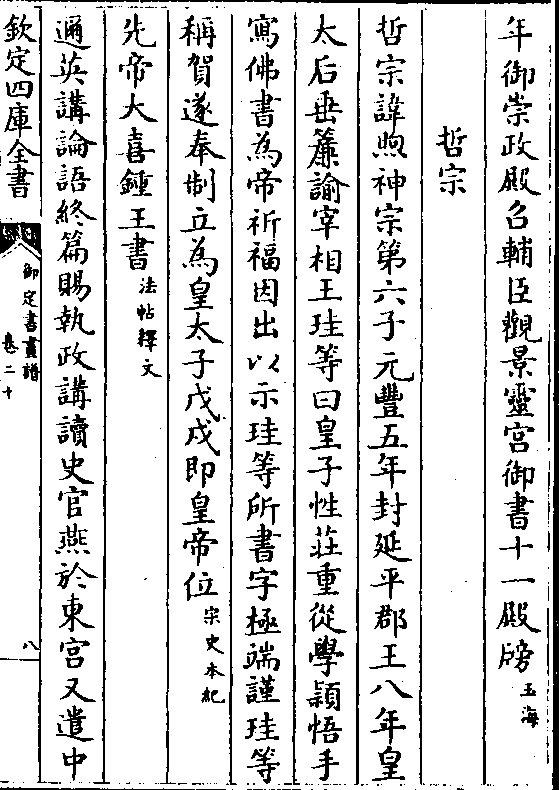 年御崇政殿召輔臣觀景靈宫御書十一殿牓玉海
哲宗
哲宗諱煦神宗第六子元豐五年封延平郡王八年皇
太后垂簾諭宰相王珪等曰皇子性莊重從學穎悟手
寫佛書為帝祈福因出以示珪等所書字極端謹珪等
稱賀遂奉制立為皇太子戊戌即皇帝位宋史本紀
先帝大喜鍾王書法帖釋文
邇英講論語終篇賜執政講讀史官燕於東宫又遣中
欽定四庫全書
御定書畫譜
卷二十
八